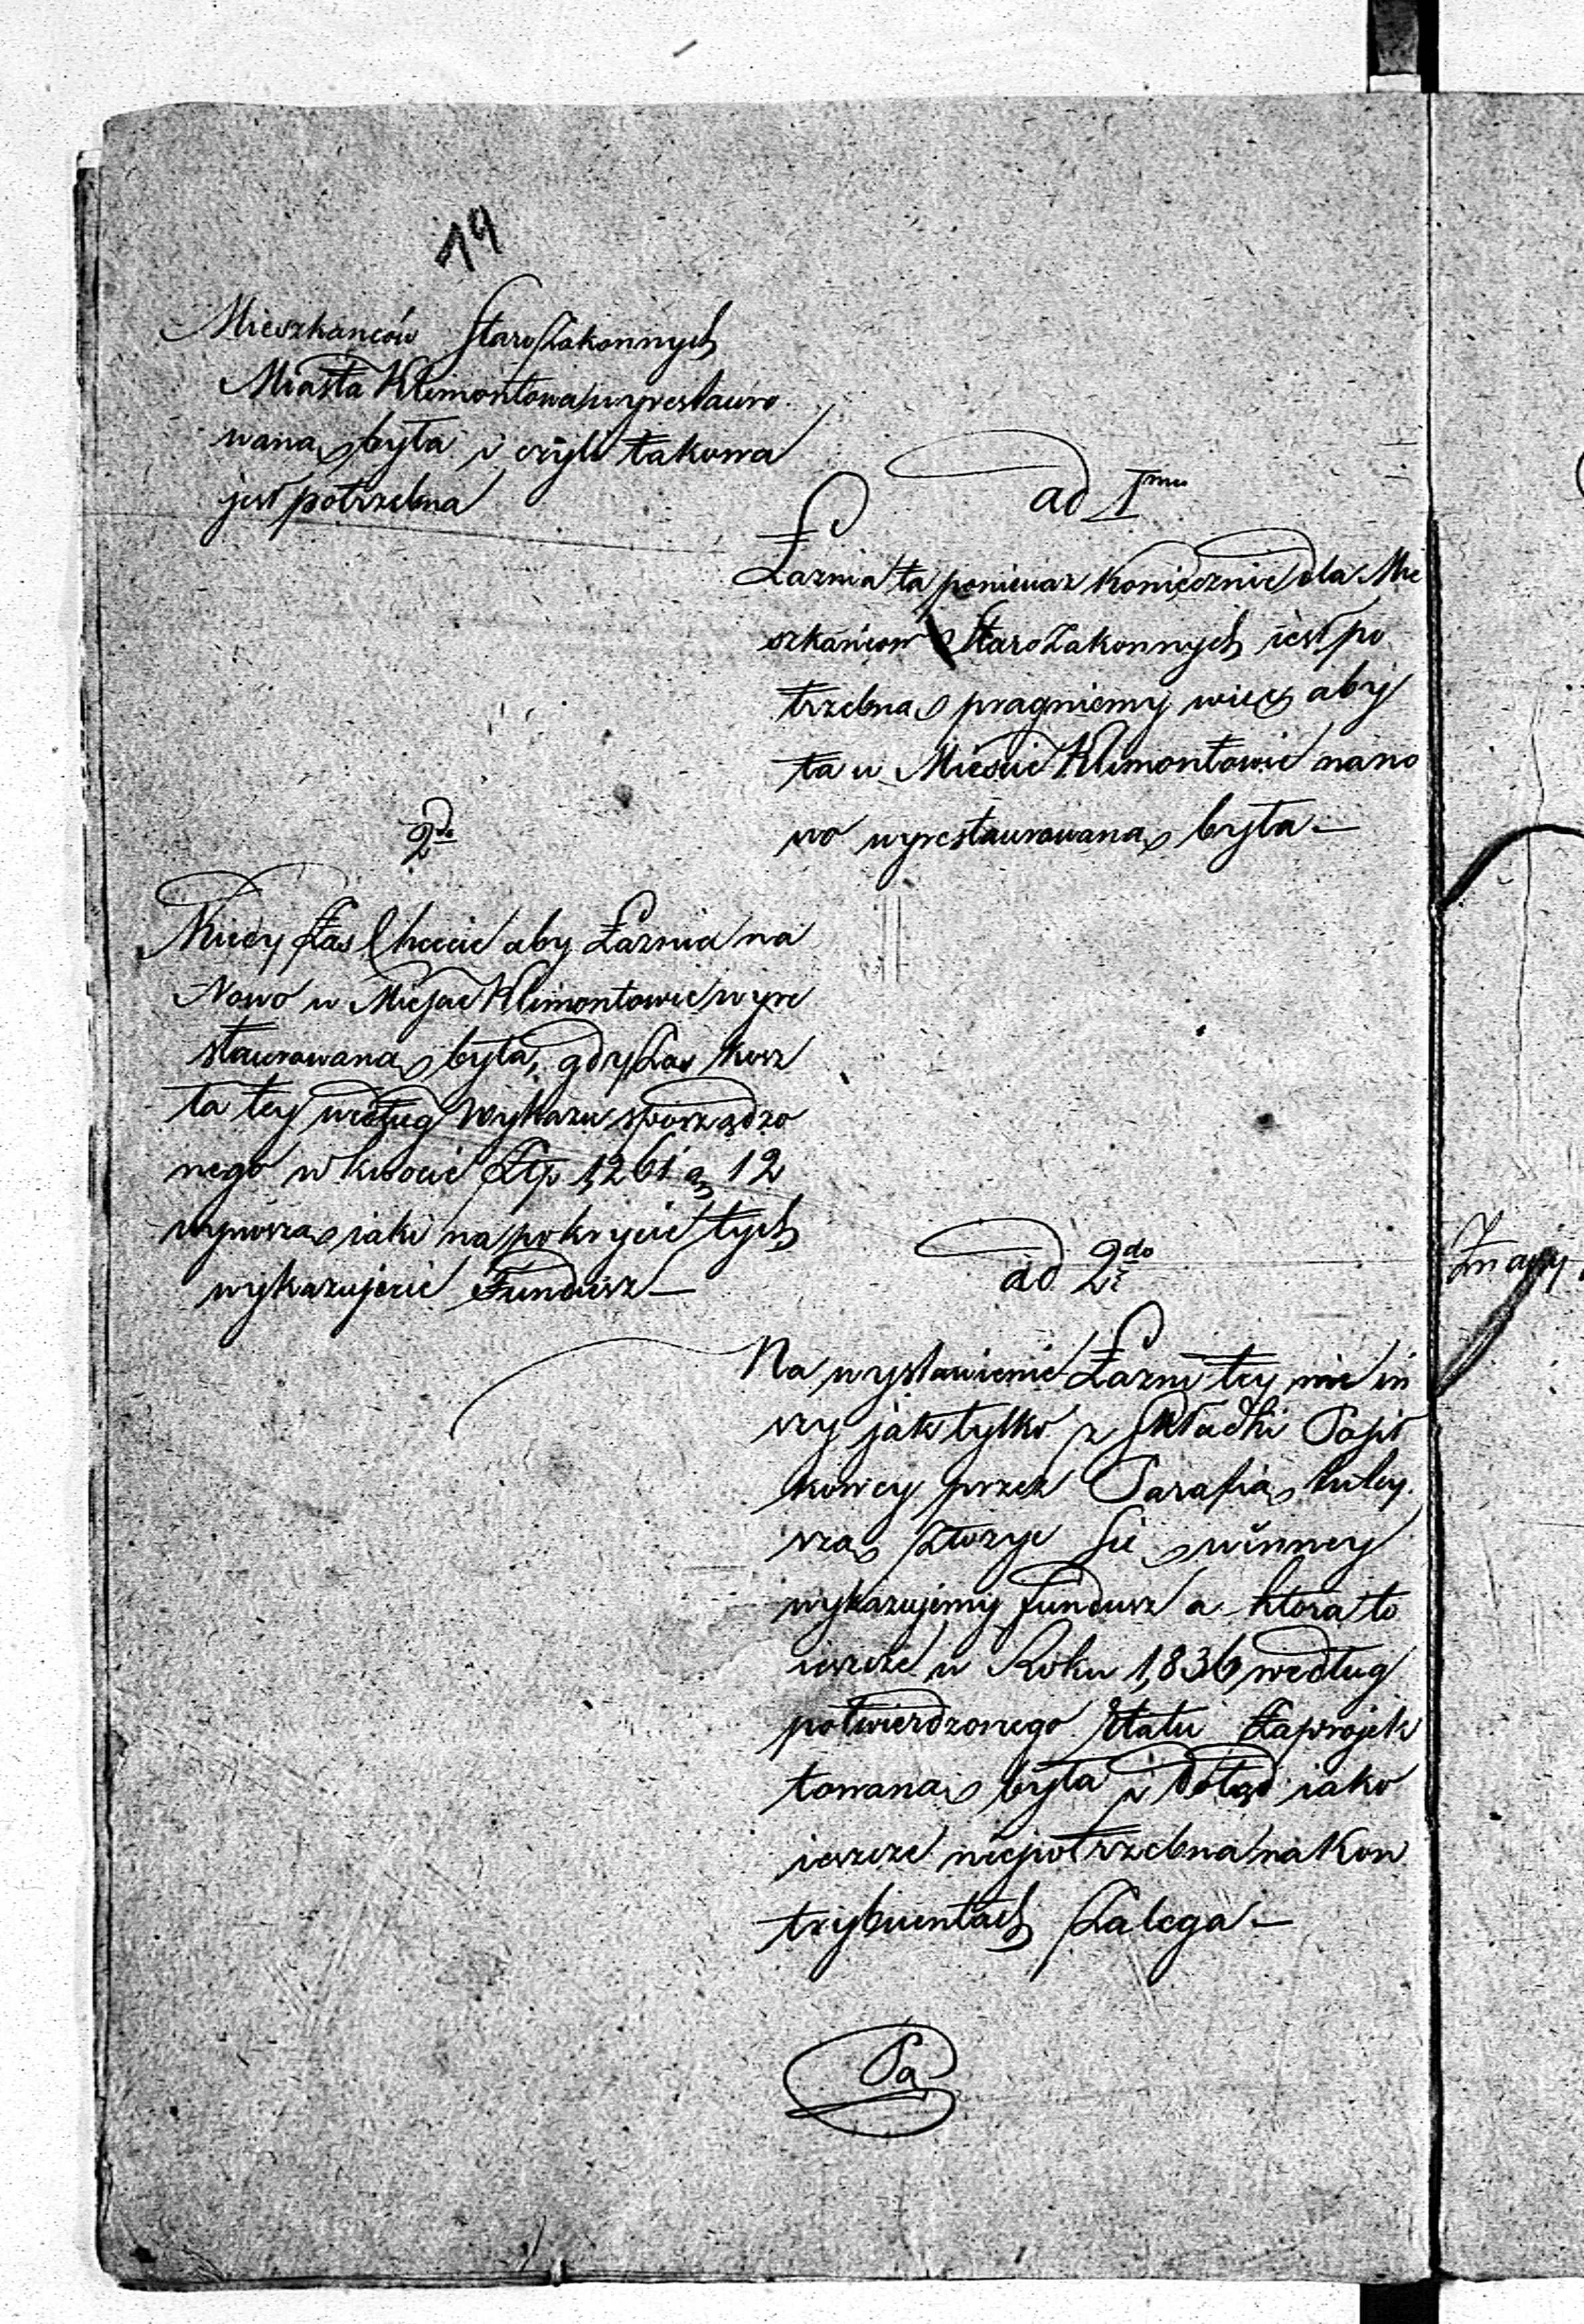 19
Mieszkańców Starozakonnych
Miasta Klimontowa wyrestauro
waną była i czyli takowa
jest potrzebna
ad 1mu
Łaznia ta ponieważ koniecznie dla Mie
szkańcow StaroZakonnych iest po
trzebną pragniemy więc aby
ta w Mieście Klimontowie nano
wo wyrestaurowaną była —
2do
Kiedy Zas Chcecie aby Łaznia na
Nowo w Mieście Klimontowie wyre
staurowaną była, gdy Zas kosz
ta tey według Wykazu sporządzo
nego w kwocie Złp 1,261 g 12
wynoszą iaki na pokrycie tych
wykazujecie Fundusz —
ad 2do
Na wystawienie Łazni tey nie in
szy jak tylko z Składki
przez Parafią tutey
szą Złożyć Się winney
wykazujemy fundusz a ktora to
ieszcze w Roku 1,836 według
potwierdzonego Etatu Zaprojek
towaną była i dotąd iako
ieszcze niepotrzebna na Kon
trybuentach Zalega —
Pa